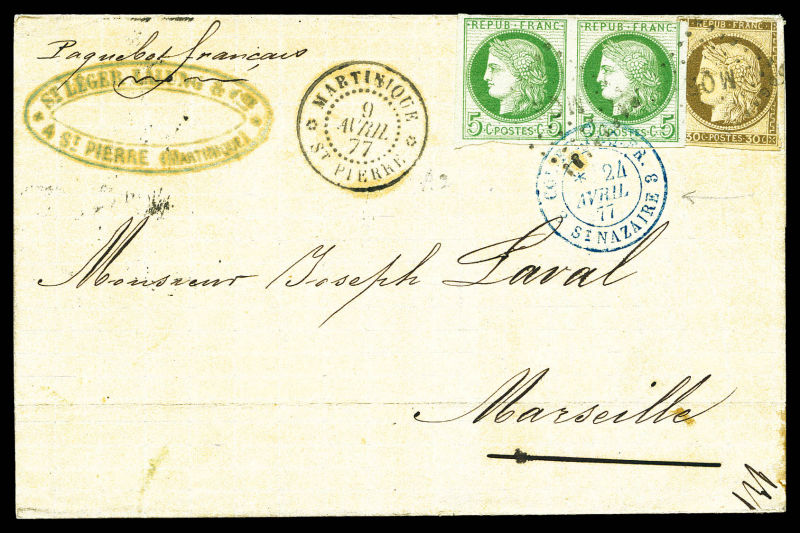 Paquebot français
ST LÉGER & CIE
* A ST PIERRE (MARTINIQUE) *
MARTINIQUE
9
AVRIL
77
* ST PIERRE *
REPUB. FRANC.
5 C. POSTES 5 C.
REPUB. FRANC.
5 C. POSTES 5 C.
REPUB. FRANC.
30 C. POSTES 30 C.
* 24
AVRIL
77
ST NAZAIRE 3
Monsieur Joseph Laval
Marseille